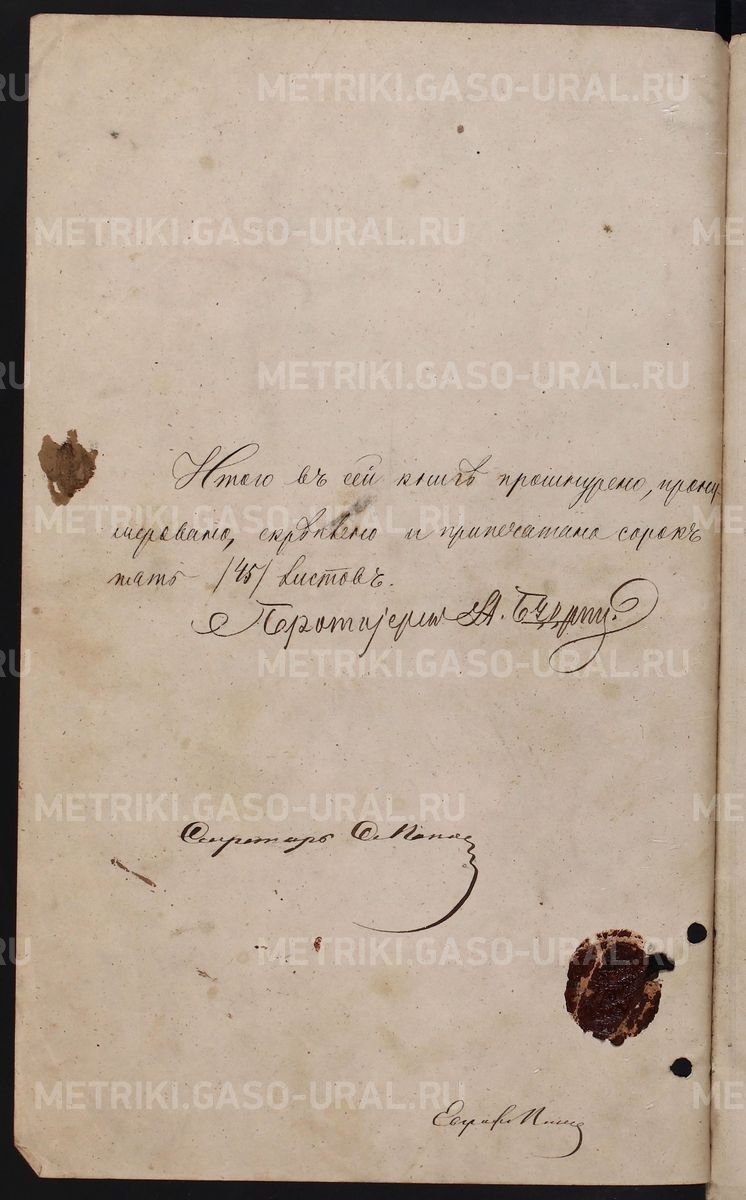 METRIKI.GASO-URAL.RU
METRIKI.GASO-URAL.RU
METRIKI.GASO-URAL.RU
Итого въ сей книгѣ прошнурено, прону
мѣровано, скрѣплено и припечатано сорокъ
METRIKI.GASO-URAL.RU
пять /45/ листовъ.
Протоіерей А.
METRIKI.GASO-URAL.RU
METRIKI.GASO-URAL.RU
Секретарь
METRIKI.GASO-URAL.RU
METRIKI.GASO-URAL.RU